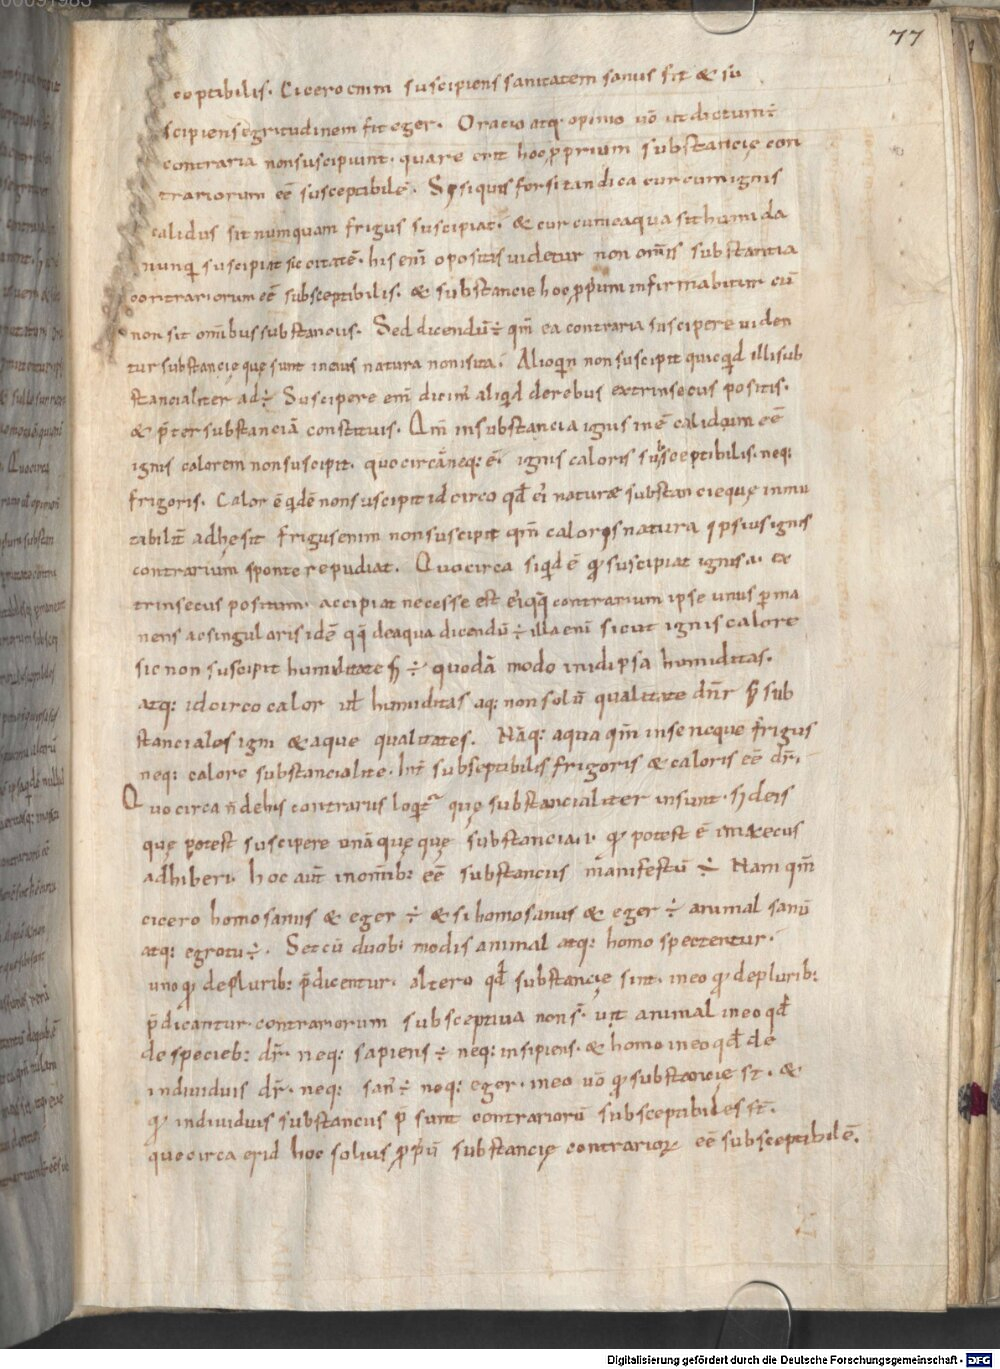 77
ceptibilis. Cicero enim suscipiens sanitatem sanus fit & su
scipiens egritudinem fit eger. Oratio atq; opinio uō ut dictum ÷
contraria non suscipiunt. quare erit hoc ꝓprium substancię con
trariorum eē susceptibile. Si quis forsitan dicat cur cum ignis
calidus sit numquam frigus suscipiat. & cur cum aqua sit humida
nunq̄ suscipiat siccitatē. his em̄ opositis uidetur non om̄is substantia
contrariorum eē subsceptibilis. & substancie hoc ꝓpium infirmabitur cū
non sit omībus substanciis. Sed dicendū ÷ qm̄ ea contraria suscipere uiden
tur substancię quę sunt in eius natura non sita. Alioqin non suscipit quicqid illi sub
stancialiter ad ÷ Suscipere em̄ dicim̄ aliqid de rebus extrinsecus positis.
& p̄ter substanciā constitutis. Qm̄ in substancia ignis inē calidum eē
ignis calorem non suscipit. quocircā neq; ē. ignis caloris subsceptibilis. neq;
frigoris. Calorē qdē non suscipit idcirco qd̄ ei naturæ substancieque inmu
tabilit̄ adhęsit frigus enim non suscipit qm̄ caloris natura ipsius ignis
contrarium sponte repudiat. Quocirca siqid ē qd suscipiat ignis a. ex
trinsecus positum. accipiat necesse est ei qq contrarium ipse unus ꝑma
nens ac singularis idē qq̄ de aqua dicendū ÷ illa enī sicut ignis calore
sic non suscipit humiditate s; ÷ quodā modo inid ipsa humiditas.
atq; idcirco calor ul̄ humiditas aq; non solū qualitate dn̄r s; sub
stanciales igni & aque qualitates. Nāq; aqua qm̄ in se neque frigus
neq; calore substancialite. int̄ subsceptibilis frigoris & caloris eē dr̄.
Quocirca n̄ de his contrariis loqit̄ quę substancialiter insunt. s; de is
quę potest suscipere unā quęquę substancia. qd potest ē intrecus
adhiberi. hoc aut̄ in omīb; eē substanciis manifestū ÷ Nam qm̄
cicero homo sanus & eger ÷ & si homo sanus & eger ÷ animal sanū
atq; egrotū ÷. Set cū duob; modis animal atq; homo spectentur.
uno qd de plurib; p̄dicentur. altero qd̄ substancię sint. in eo qd de plurib;
p̄dicantur contrariorum subsceptiua non s̄. ut animal in eo qd̄
de specieb; dr̄. neq; sapiens ÷ neq; insipiens. & homo in eo qd̄ de
indiuiduis dr̄. neq; san ÷ neq; eger. in eo uō qd substancię st̄. &
qd indiuiduis substanciis p̄ sunt contrariorū subsceptibiles st̄.
quocirca erid hoc solius ꝓpiū substancię contrarioꝝ eē subsceptibilē.
00091983
Digitalisierung gefördert durch die Deutsche Forschungsgemeinschaft - DFG